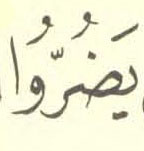 يَضُرُّوُا